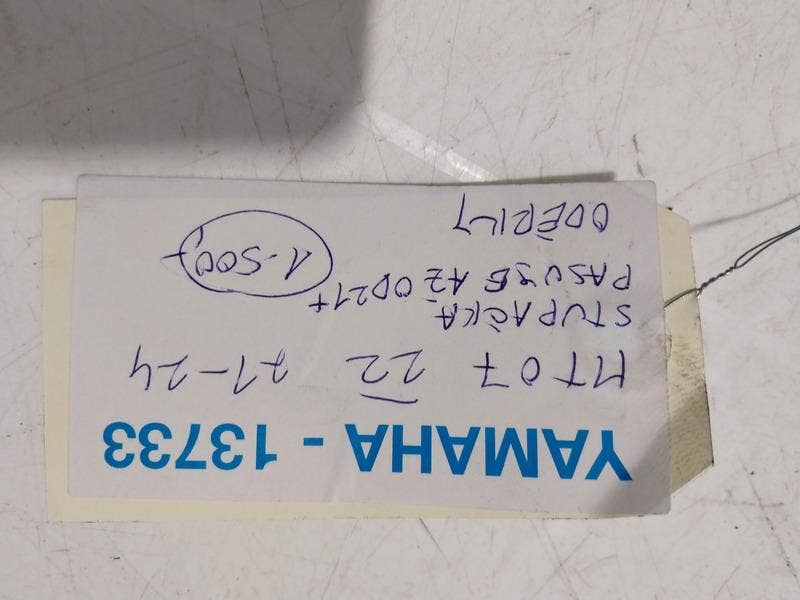 YAMAHA - 13733
MT07 22 21-24
STUPAČKA
PASUJE AŽ OD21+
1-500,-
ODĚRKY